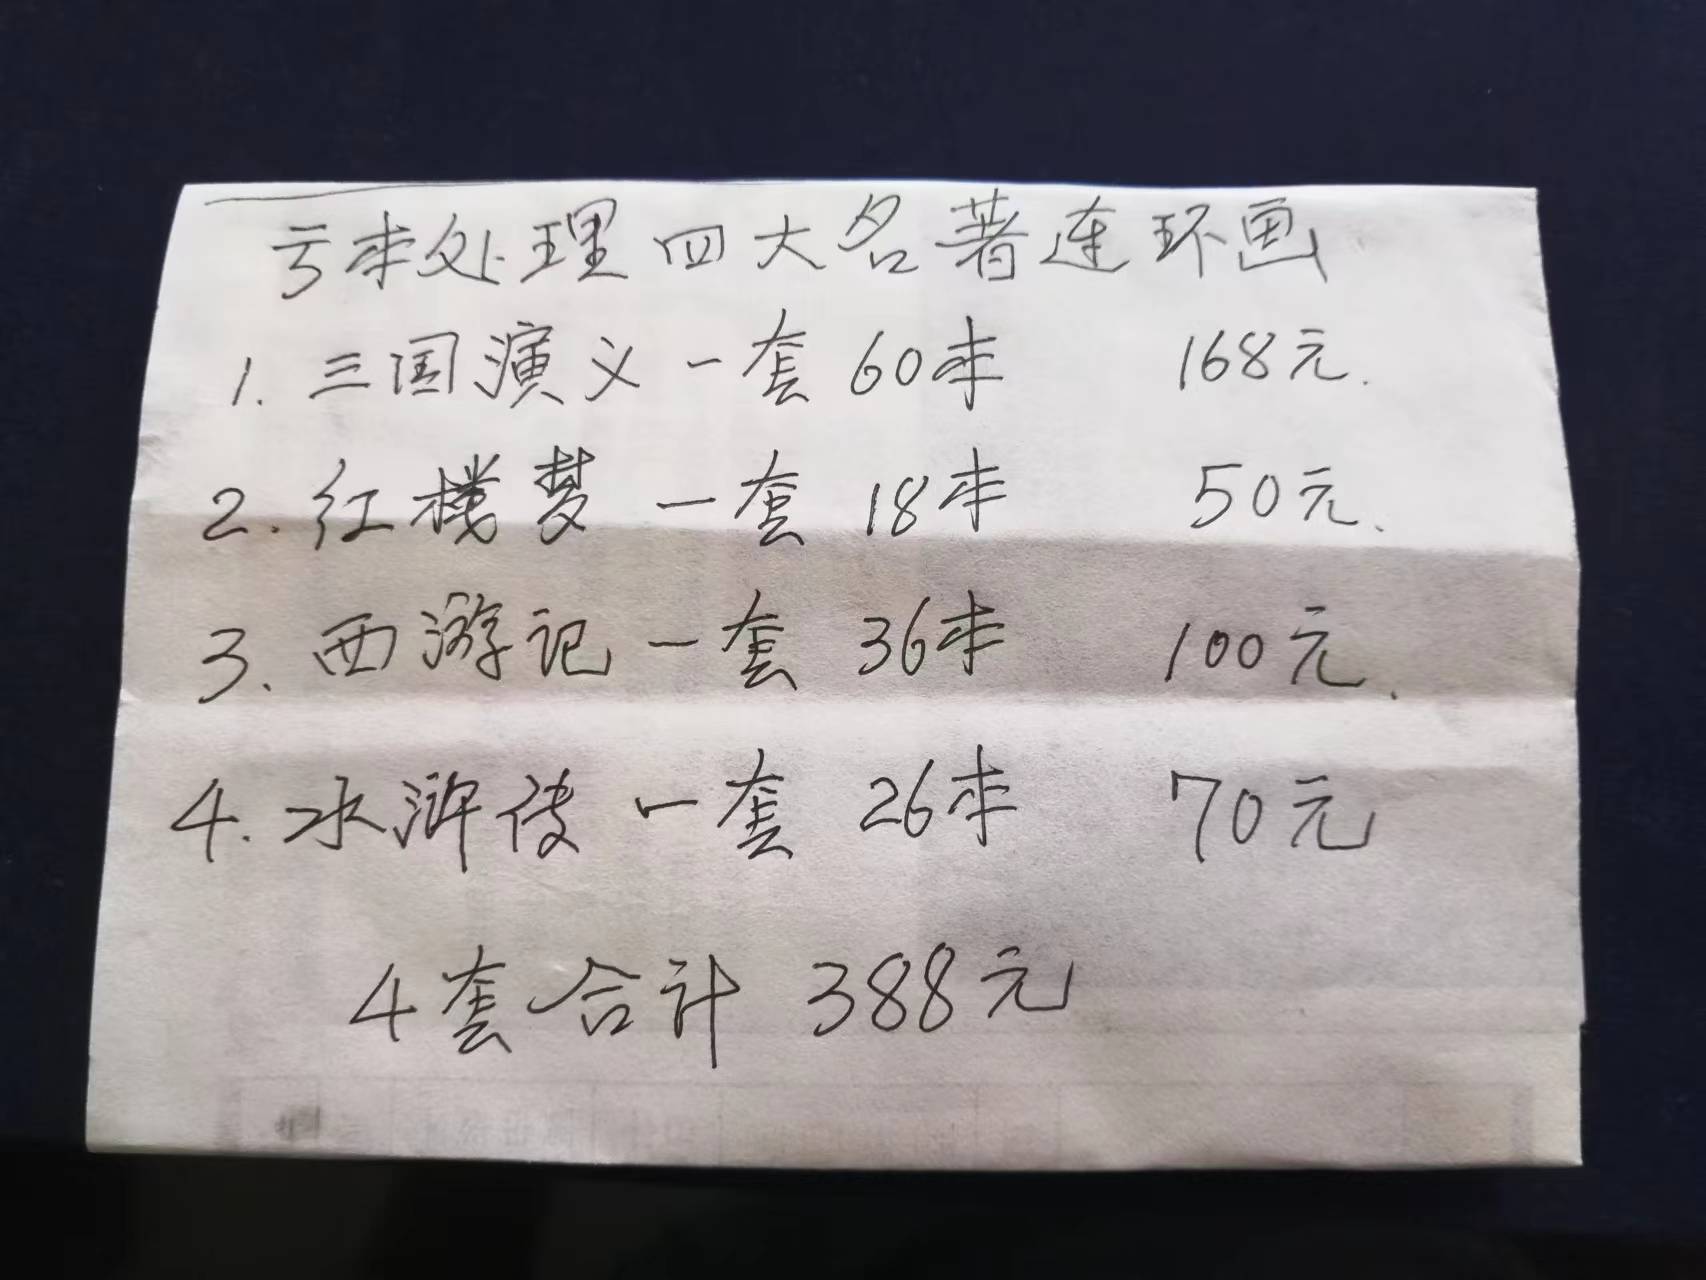 亏本处理四大名著连环画
1. 三国演义一套 60本 168元.
2. 红楼梦一套 18本 50元.
3. 西游记一套 36本 100元.
4. 水浒传一套 26本 70元
4套合计 388元